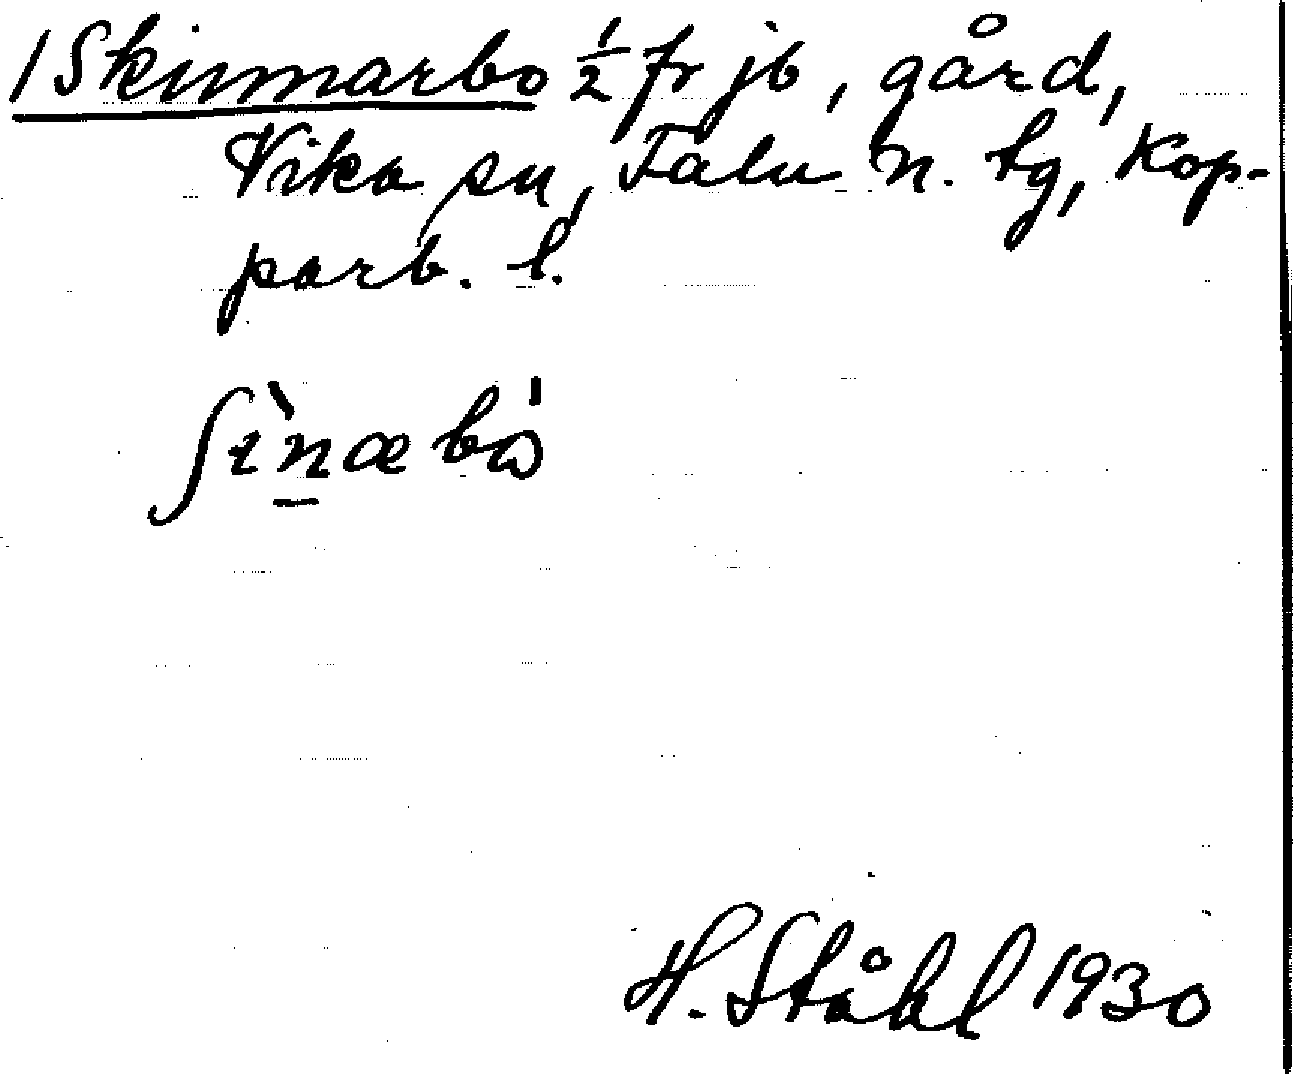 / Skinnarbo ½ fr jb, gård,
Vika sn, Falu n. tg, Kop-
parb. l.
ʃìnæbó
H. Ståhl 1930